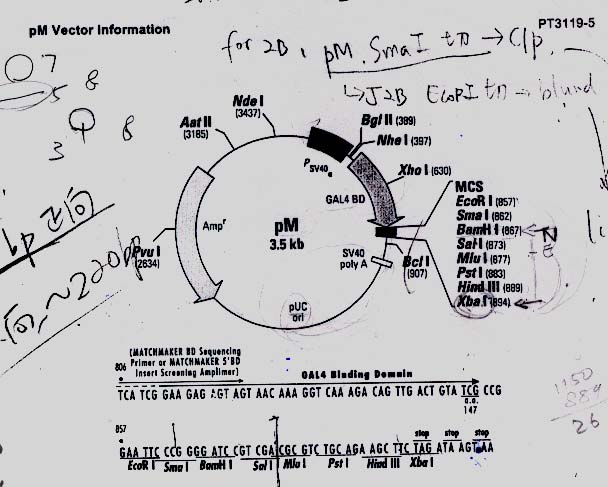 pM Vector Information
PT3119-5
for 2B, pM SmaI 切 → CIp.
↳ J2B EcoRI 切 → blund
7
8
5
8
3
Nde I
(3437)
Aat II
(3185)
Bgl II (389)
Nhe I (397)
PSV40e
Xho I (630)
GAL4 BD
MCS
EcoR I (857)
Sma I (862)
BamH I (867)
Sal I (873)
Mlu I (877)
Pst I (883)
Hind III (889)
Xba I (894)
Ampr
pM
3.5 kb
SV40
poly A
Bcl I
(907)
Pvu I
(2634)
pUC
ori
~220bp
1150
889
26
(MATCHMAKER BD Sequencing
Primer or MATCHMAKER 5'BD
Insert Screening Amplimer)
GAL4 Binding Domain
806
TCA TCG GAA GAG AGT AGT AAC AAA GGT CAA AGA CAG TTG ACT GTA TCG CCG
a.a.
147
857
stop stop stop
GAA TTC CCG GGG ATC CGT CGA CGC GTC TGC AGA AGC TTC TAG ATA AGT AA
EcoR I Sma I BamH I Sal I Mlu I Pst I Hind III Xba I